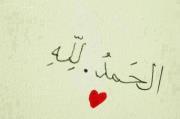 الحَمدُ لِلّهِ